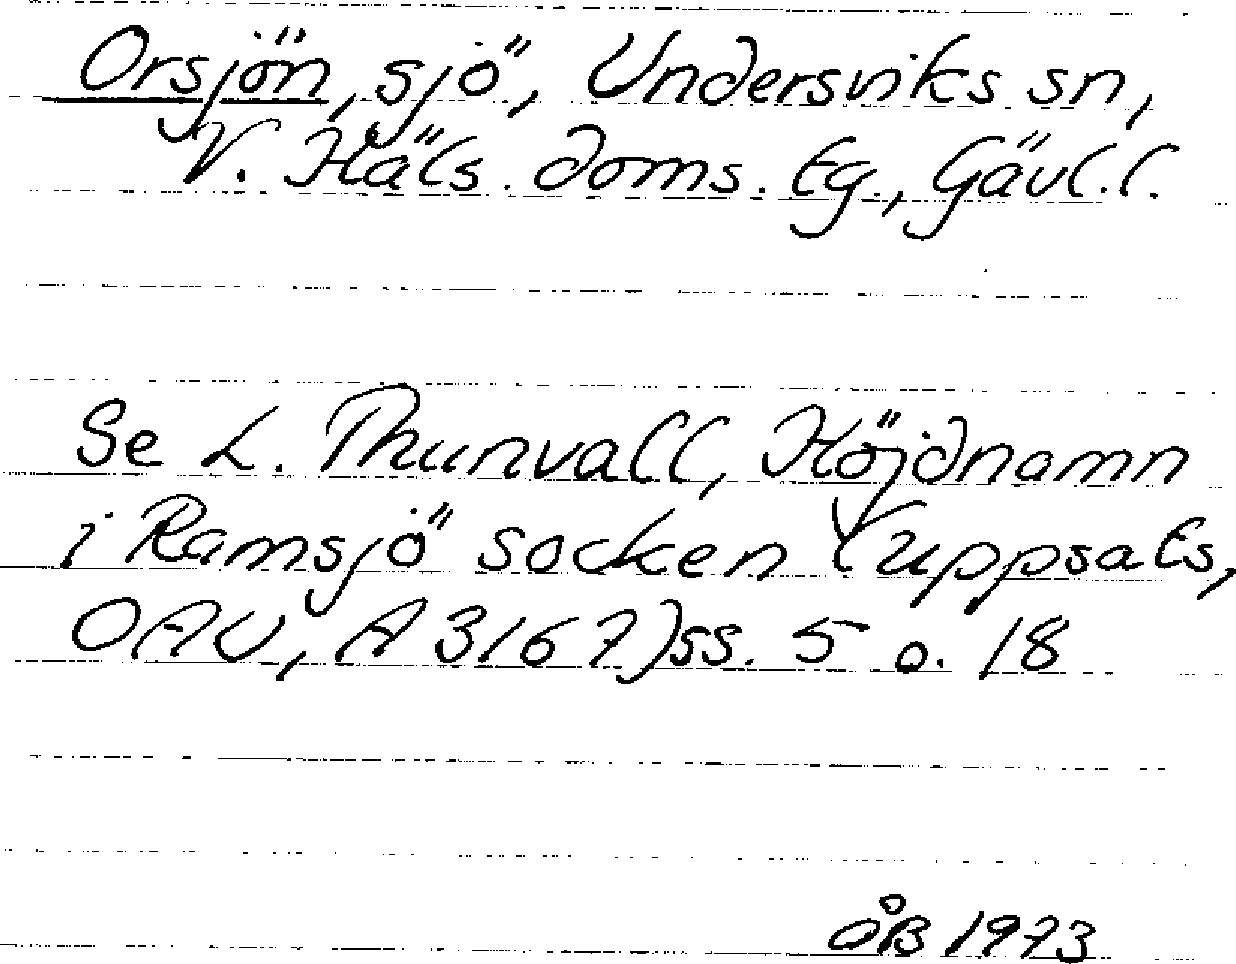 Orsjön, sjö, Undersviks sn,
V. Häls. doms. tg., Gävl.l.
Se L. Thunvall, Höjdnamn
i Ramsjö socken (uppsats,
OAU, A 3167) ss. 5 o. 18
ÖB 1973